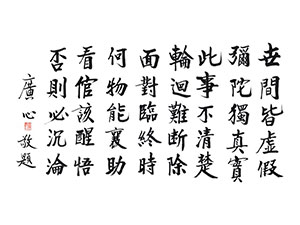 世間皆虛假
彌陀獨真實
此事不清楚
輪迴難断除
面對臨終時
何物能襄助
看倌該醒悟
否則必沉淪
廣心敬題